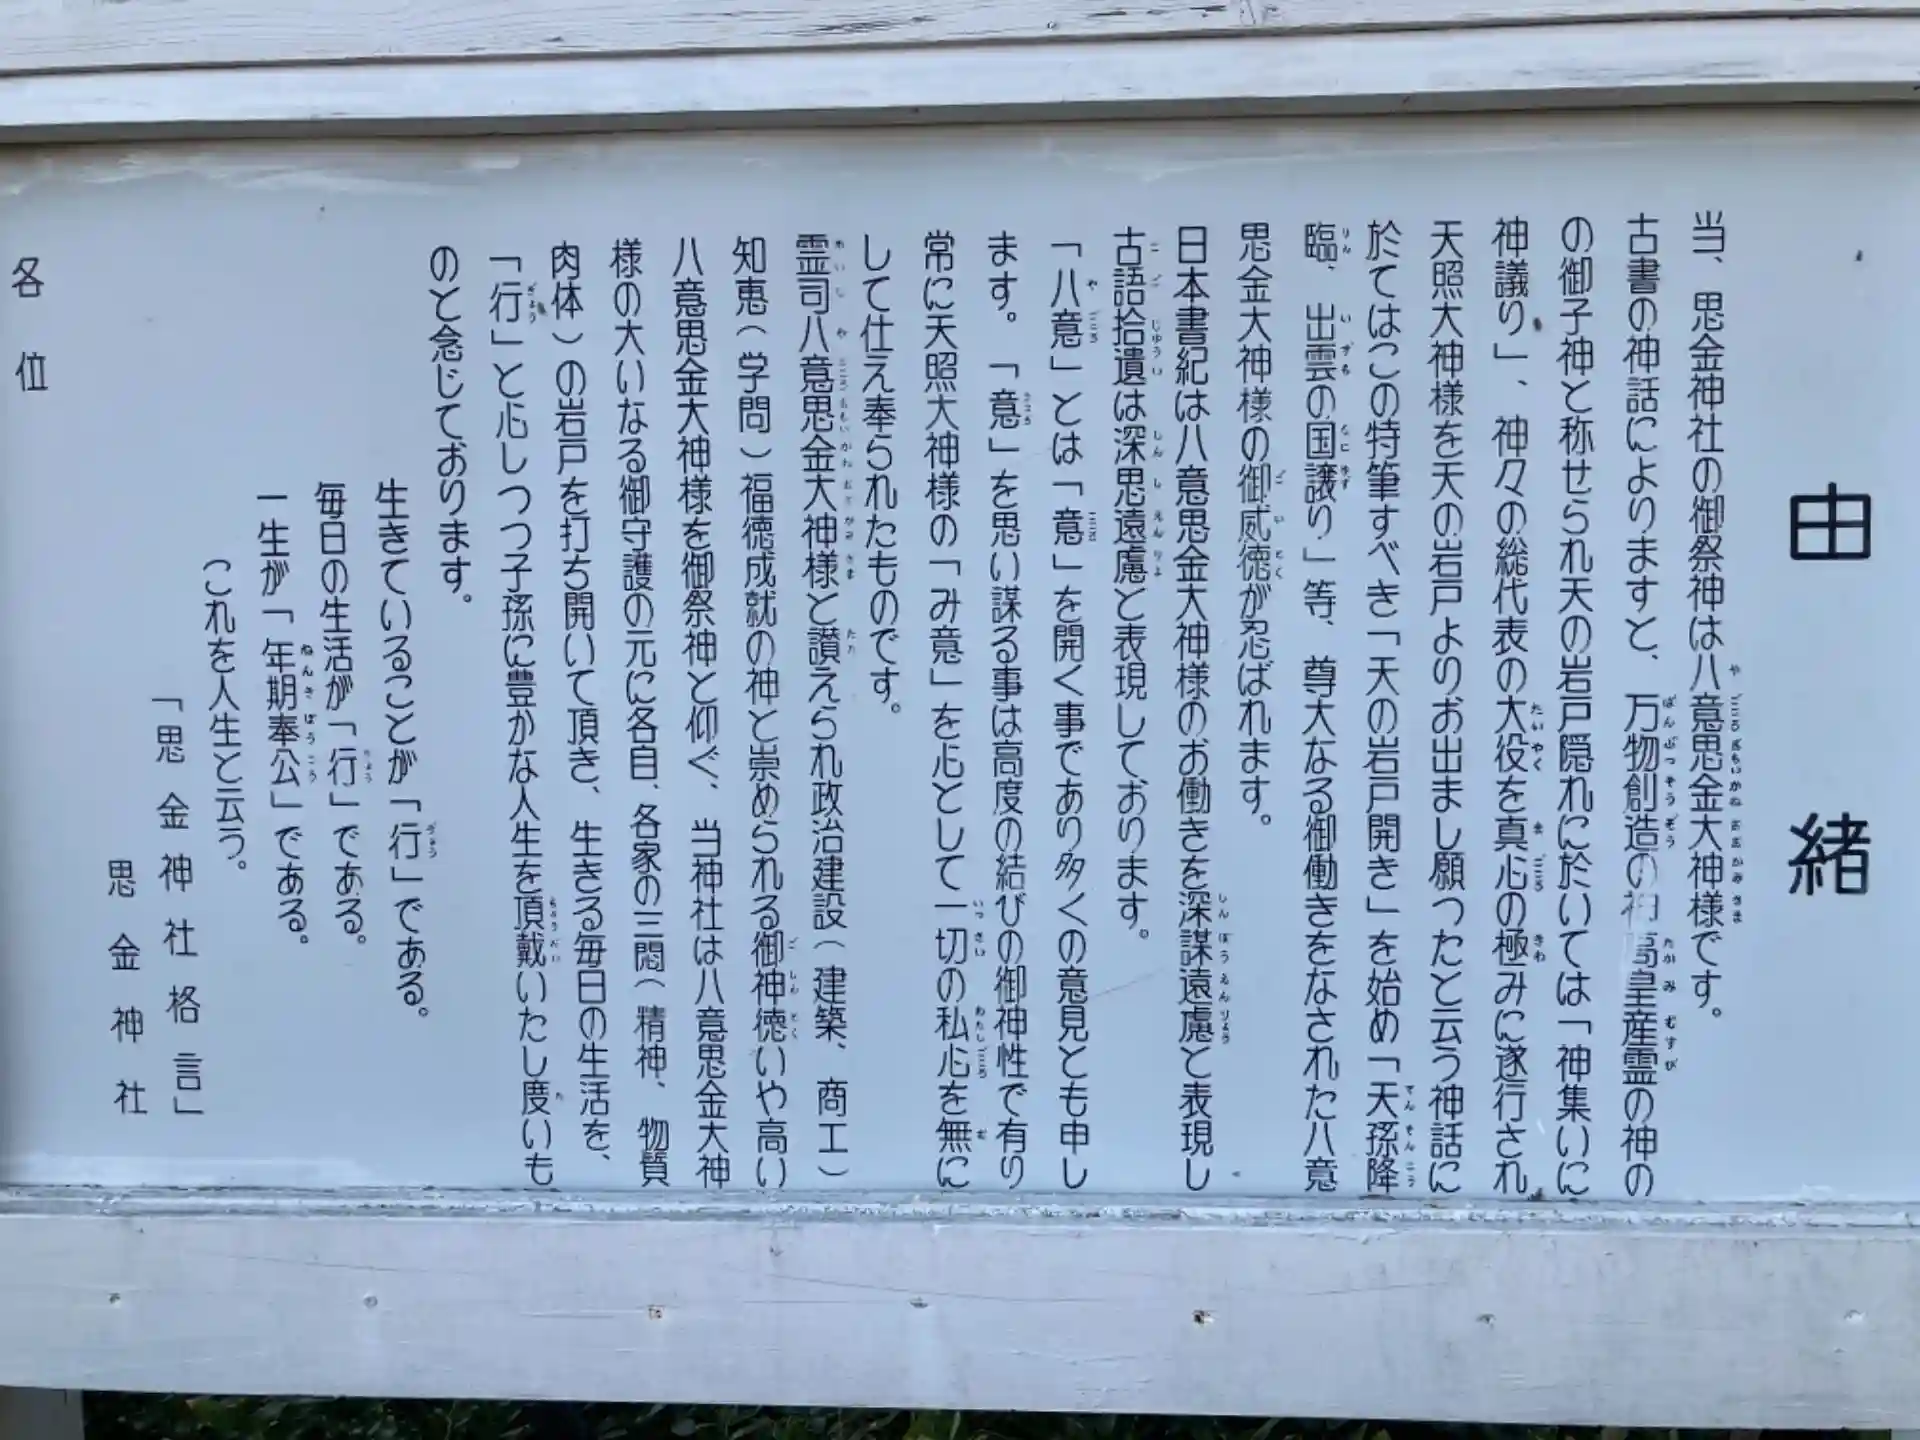 由緒
当、思金神社の御祭神は八意思金大神様です。
古書の神話によりますと、万物創造の神高皇産霊の神の
の御子神と称せられ天の岩戸隠れに於いては「神集いに
神議り」、神々の総代表の大役を真心の極みに遂行され
天照大神様を天の岩戸よりお出まし願ったと云う神話に
於てはこの特筆すべき「天の岩戸開き」を始め「天孫降
臨、出雲の国譲り」等、尊大なる御働きをなされた八意
思金大神様の御威徳が忍ばれます。
日本書紀は八意思金大神様のお働きを深謀遠慮と表現し
古語拾遺は深思遠慮と表現しております。
「八意」とは「意」を開く事であり多くの意見とも申し
ます。「意」を思い謀る事は高度の結びの御神性で有り
常に天照大神様の「み意」を心として一切の私心を無に
して仕え奉られたものです。
霊司八意思金大神様と讃えられ政治建設（建築、商工）
知恵（学問）福徳成就の神と崇められる御神徳いや高い
八意思金大神様を御祭神と仰ぐ、当神社は八意思金大神
様の大いなる御守護の元に各自、各家の三悶（精神、物質
肉体）の岩戸を打ち開いて頂き、生きる毎日の生活を、
「行」と心しつつ子孫に豊かな人生を頂戴いたし度いも
のと念じております。
生きていることが「行」である。
毎日の生活が「行」である。
一生が「年期奉公」である。
これを人生と云う。
「思金神社格言」
思金神社
各位